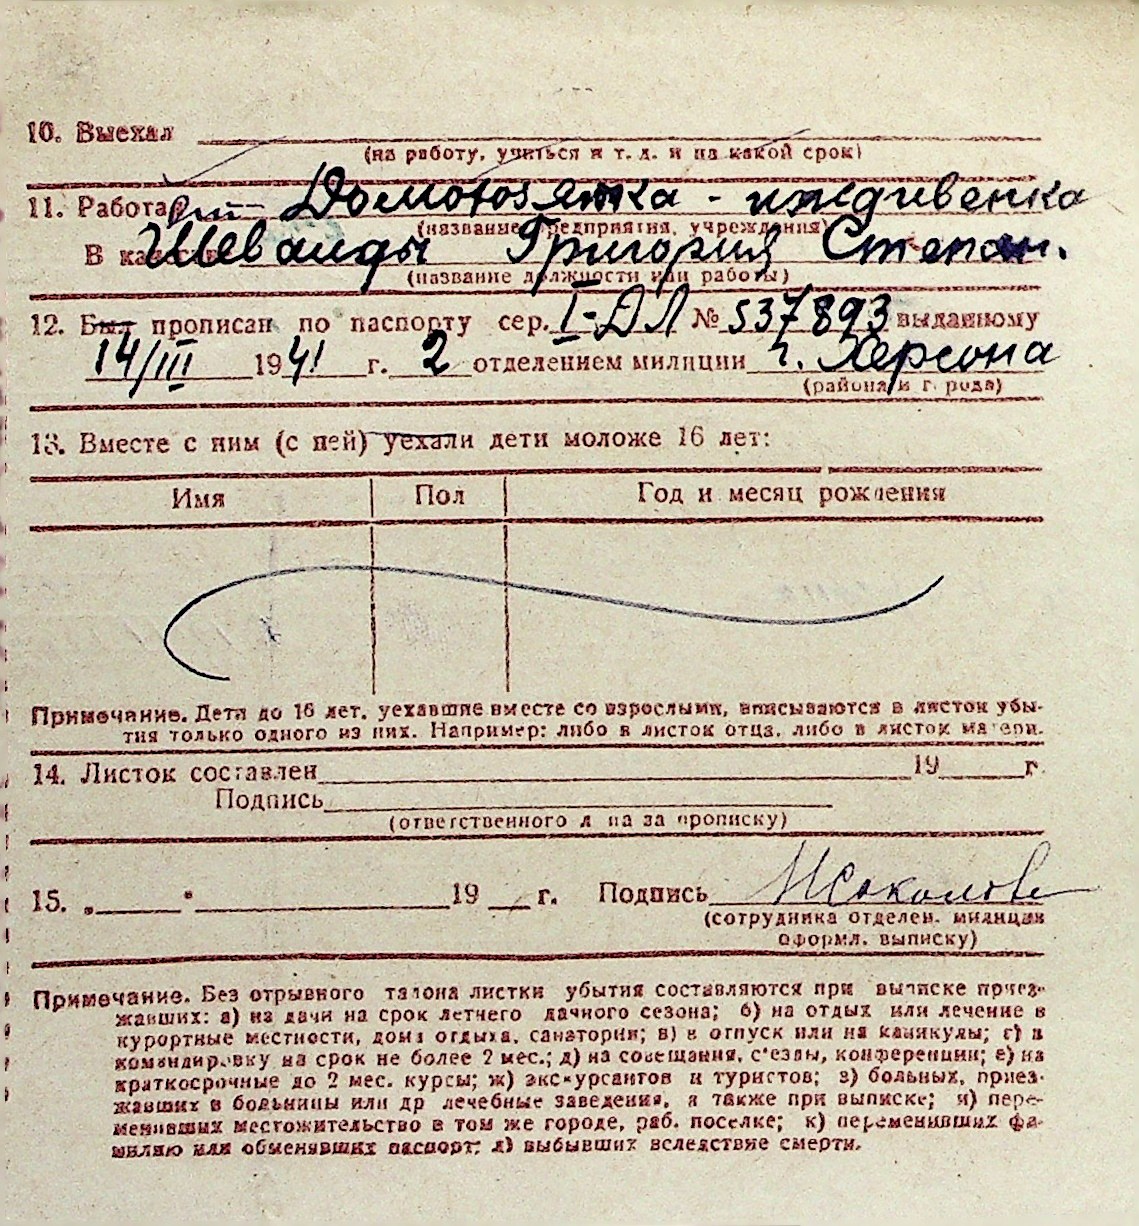 10. Выехал
(на работу, учиться и т. д. и на какой срок)
11. Работа Домохозяйка - иждивенка
(название предприятия, учреждения)
В ка Шеванды Григория Степан.
(название должности или работы)
12. Был прописан по паспорту сер. I-ДЛ № 537893 выданному
14/III 1941 г. 2 отделением милиции г. Херсона
(района и города)
13. Вместе с ним (с ней) уехали дети моложе 16 лет:
Имя Пол Год и месяц рождения
Примечание. Дети до 16 лет, уехавшие вместе со взрослыми, вписываются в листок убы-
тия только одного из них. Например: либо в листок отца, либо в листок матери.
14. Листок составлен 19 г.
Подпись
(ответственного лица за прописку)
15. „ " 19 г. Подпись НСоколов
(сотрудника отделен. милиции
оформл. выписку)
Примечание. Без отрывного талона листки убытия составляются при выписке приез-
жавших: а) на дачи на срок летнего дачного сезона; б) на отдых или лечение в
курортные местности, дома отдыха, санатории; в) в отпуск или на каникулы; г) в
командировку на срок не более 2 мес.; д) на совещания, с'езды, конференции; е) на
краткосрочные до 2 мес. курсы; ж) экскурсантов и туристов; з) больных, приез-
жавших в больницы или др лечебные заведения, а также при выписке; и) пере-
менивших местожительство в том же городе, раб. поселке; к) переменивших фа-
милию или обменявших паспорт; л) выбывших вследствие смерти.